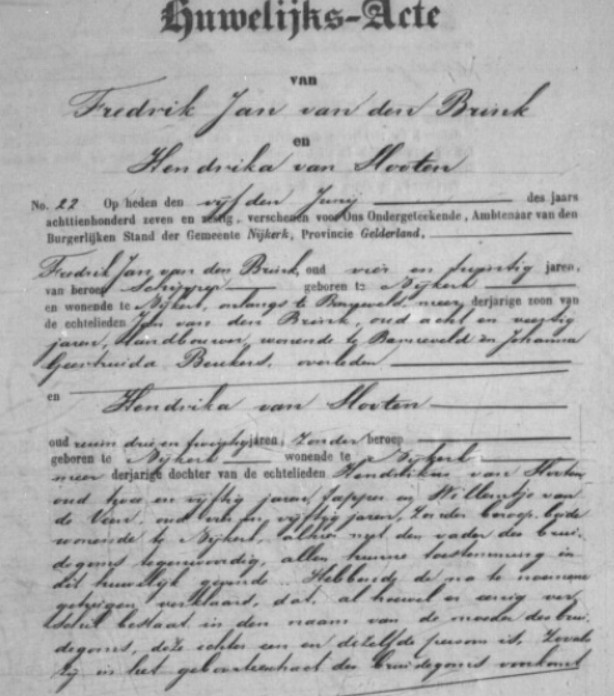 Huwelijks-Acte
van
Fredrik Jan van den Brink
en
Hendrika van Hooten
No. 22 Op heden den vijfden Junij des jaars
achttienhonderd zeven en zestig, verschenen voor Ons Ondergeteekende, Ambtenaar van den
Burgerlijken Stand der Gemeente Nijkerk, Provincie Gelderland,
Fredrik Jan van den Brink, oud vier en twintig jaren,
van beroep Schipper geboren te Nijkerk
en wonende te Nijkerk, onlangs te Barneveld, meerderjarige zoon van
de echtelieden Jan van den Brink, oud acht en veertig
jaren, Landbouwer, wonende te Barneveld en Johanna
Geertruida Beukers, overleden
en Hendrika van Hooten
oud ruim drie en twintig jaren, Zonder beroep
geboren te Nijkerk wonende te Nijkerk
meer derjarige dochter van de echtelieden Hendrikus van Hooten
oud twee en vijftig jaren, tapper en Willemtje van
de Veen, oud vijftig jaren, Zonder beroep, beide
wonende te Nijkerk, alhier met den vader des brui-
degoms tegenwoordig, allen hunne toestemming in
dit huwelijk gevende. Hebbende de na te noemene
getuigen verklaard, dat, al hoewel er eenig ver
schil bestaat in den naam van de moeder des brui
degoms, deze echter een en dezelfde persoon is, Zooals
zij in het geboorteextract des bruidegoms voorkomt